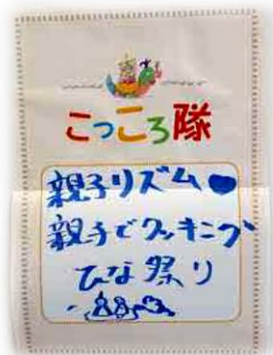 こっころ隊
親子リズム♥
親子でクッキング
ひな祭り